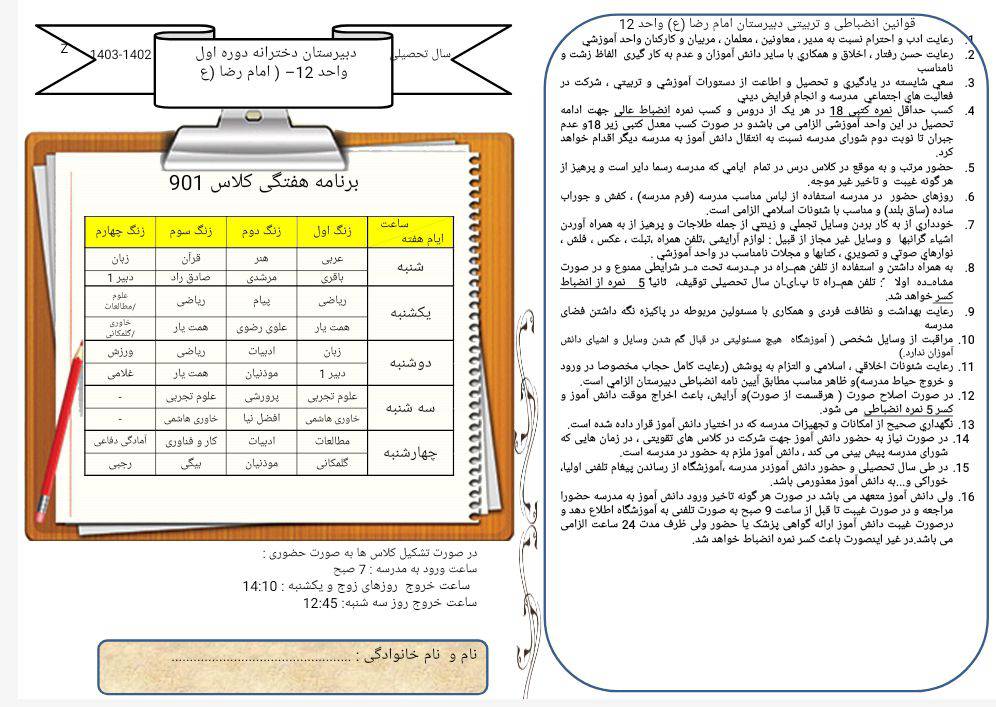 قوانین انضباطی و تربیتی دبیرستان امام رضا (ع) واحد 12
1. رعایت ادب و احترام نسبت به مدیر ، معاونین ، معلمان ، مربیان و کارکنان واحد آموزشي
2. رعایت حسن رفتار ، اخلاق و همکاري با سایر دانش آموزان و عدم به کار گیری الفاظ زشت و
نامناسب
3. سعي شایسته در یادگیري و تحصیل و اطاعت از دستورات آموزشي و تربیتي ، شرکت در
فعالیت هاي اجتماعي مدرسه و انجام فرایض دیني
4. کسب حداقل نمره کتبی 18 در هر یک از دروس و کسب نمره انضباط عالی جهت ادامه
تحصیل در این واحد آموزشی الزامی می باشدو در صورت کسب معدل کتبی زیر 18و عدم
جبران تا نوبت دوم شورای مدرسه نسبت به انتقال دانش آموز به مدرسه دیگر اقدام خواهد
کرد.
5. حضور مرتب و به موقع در کلاس درس در تمام ایامي که مدرسه رسما دایر است و پرهیز از
هر گونه غیبت و تاخیر غیر موجه.
6. روزهاي حضور در مدرسه استفاده از لباس مناسب مدرسه (فرم مدرسه) ، کفش و جوراب
ساده (ساق بلند) و مناسب با شئونات اسلامي الزامی است.
7. خودداري از به کار بردن وسایل تجملي و زینتي از جمله طلاجات و پرهیز از به همراه آوردن
اشیاء گرانبها و وسایل غیر مجاز از قبیل : لوازم آرایشی ،تلفن همراه ،تبلت ، عکس ، فلش ،
نوارهای صوتي و تصویري ، کتابها و مجلات نامناسب در واحد آموزشي .
8. به همراه داشتن و استفاده از تلفن همـراه در مـدرسه تحت مـر شرایطي ممنوع و در صورت
مشاهـده اولا ً : تلفن همـراه تا پـایـان سال تحصیلی توقیف، ثانیاً 5 نمره از انضباط
کسر خواهد شد.
9. رعایت بهداشت و نظافت فردی و همکاري با مسئولین مربوطه در پاکیزه نگه داشتن فضاي
مدرسه
10. مراقبت از وسایل شخصی ( آموزشگاه هیچ مسئولیتی در قبال گم شدن وسایل و اشیای دانش
آموزان ندارد.)
11. رعایت شئونات اخلاقي ، اسلامي و التزام به پوشش (رعایت کامل حجاب مخصوصا در ورود
و خروج حیاط مدرسه)و ظاهر مناسب مطابق آیین نامه انضباطی دبیرستان الزامي است.
12. در صورت اصلاح صورت ( هرقسمت از صورت)و آرایش، باعث اخراج موقت دانش آموز و
کسر 5 نمره انضباطی می شود.
13. نگهداري صحیح از امکانات و تجهیزات مدرسه که در اختیار دانش آموز قرار داده شده است.
14. در صورت نیاز به حضور دانش آموز جهت شرکت در کلاس های تقویتی ، در زمان هایی که
شورای مدرسه پیش بینی می کند ، دانش آموز ملزم به حضور در مدرسه است.
15. در طی سال تحصیلی و حضور دانش آموزدر مدرسه ،آموزشگاه از رساندن پیغام تلفنی اولیا،
خوراکی و...به دانش آموز معذورمی باشد.
16. ولی دانش آموز متعهد می باشد در صورت هر گونه تاخیر ورود دانش آموز به مدرسه حضورا
مراجعه و در صورت غیبت تا قبل از ساعت 9 صبح به صورت تلفنی به آموزشگاه اطلاع دهد و
درصورت غیبت دانش آموز ارائه گواهی پزشک یا حضور ولی ظرف مدت 24 ساعت الزامی
می باشد.در غیر اینصورت باعث کسر نمره انضباط خواهد شد.
سال تحصیلی 1402-1403 Z
دبیرستان دخترانه دوره اول
واحد 12– ( امام رضا (ع
برنامه هفتگی کلاس 901
ساعت ایام هفته زنگ اول زنگ دوم زنگ سوم زنگ چهارم
شنبه عربی هنر قرآن زبان
باقری مرشدی صادق راد دبیر 1
یکشنبه ریاضی پیام ریاضی علوم /مطالعات
همت یار علوی رضوی همت یار خاوری /گلمکانی
دوشنبه زبان ادبیات ریاضی ورزش
دبیر 1 موذنیان همت یار غلامی
سه شنبه علوم تجربی پرورشی علوم تجربی -
خاوری هاشمی افضل نیا خاوری هاشمی -
چهارشنبه مطالعات ادبیات کار و فناوری آمادگی دفاعی
گلمکانی موذنیان بیگی رجبی
در صورت تشکیل کلاس ها به صورت حضوری :
ساعت ورود به مدرسه : 7 صبح
ساعت خروج روزهای زوج و یکشنبه : 14:10
ساعت خروج روز سه شنبه: 12:45
نام و نام خانوادگی : ................................................